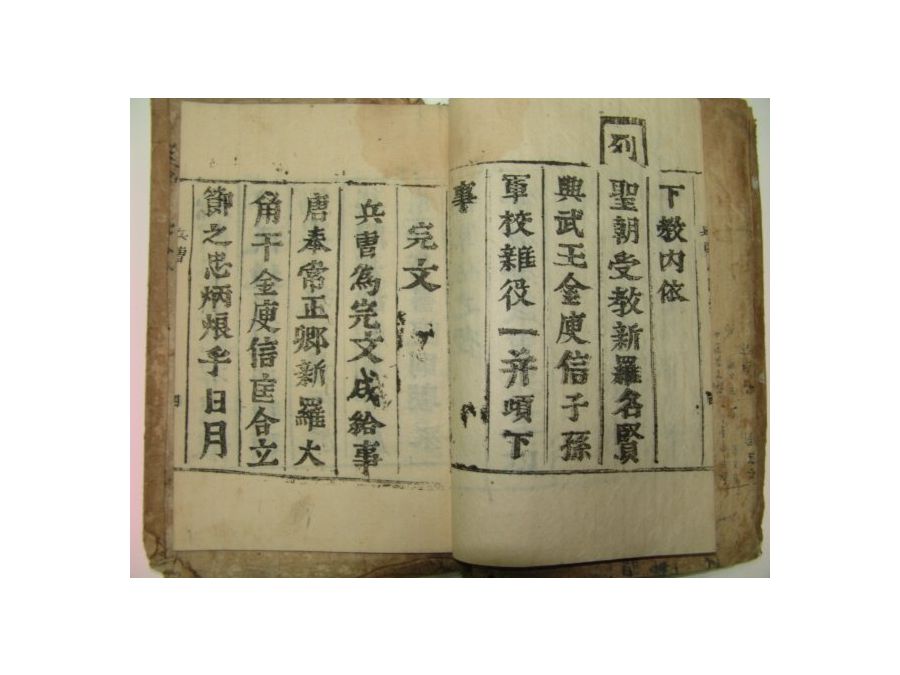 下教内依
列
聖朝受教新羅名賢
興武王金庾信子孫
軍校雜役一并頉下
事
完文
兵曹為完文成給事
唐奉常正卿新羅大
角干金庾信匡合立
節之忠炳烺乎日月
兵曹
四